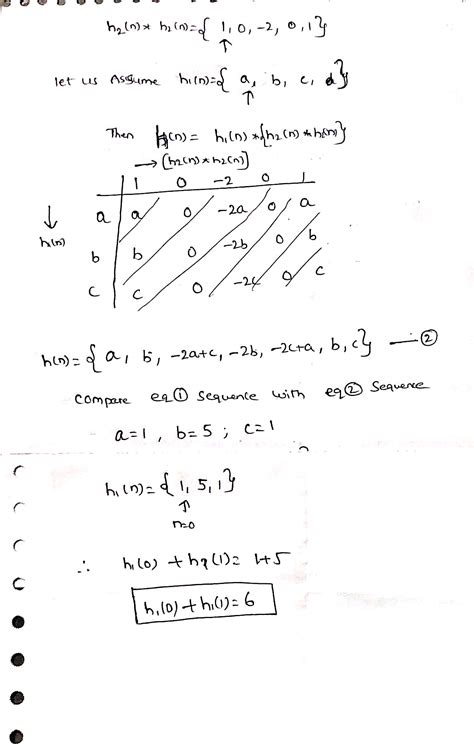 h₂(n) * h₂(n) = { 1, 0, -2, 0, 1 }
↑
let us Assume h₁(n) = { a, b, c, d }
↑
Then h(n) = h₁(n) * { h₂(n) * h₂(n) }
→ [h₂(n) * h₂(n)]
1 0 -2 0 1
a a 0 -2a 0 a
↓
h₁(n)
b b 0 -2b 0 b
c c 0 -2c 0 c
h(n) = { a, b, -2a+c, -2b, -2c+a, b, c } — ②
compare eq ① sequence with eq ② sequence
a=1 , b=5 ; c=1
h₁(n) = { 1, 5, 1 }
↑
n=0
∴ h₁(0) + h₁(1) = 1+5
h₁(0) + h₁(1) = 6